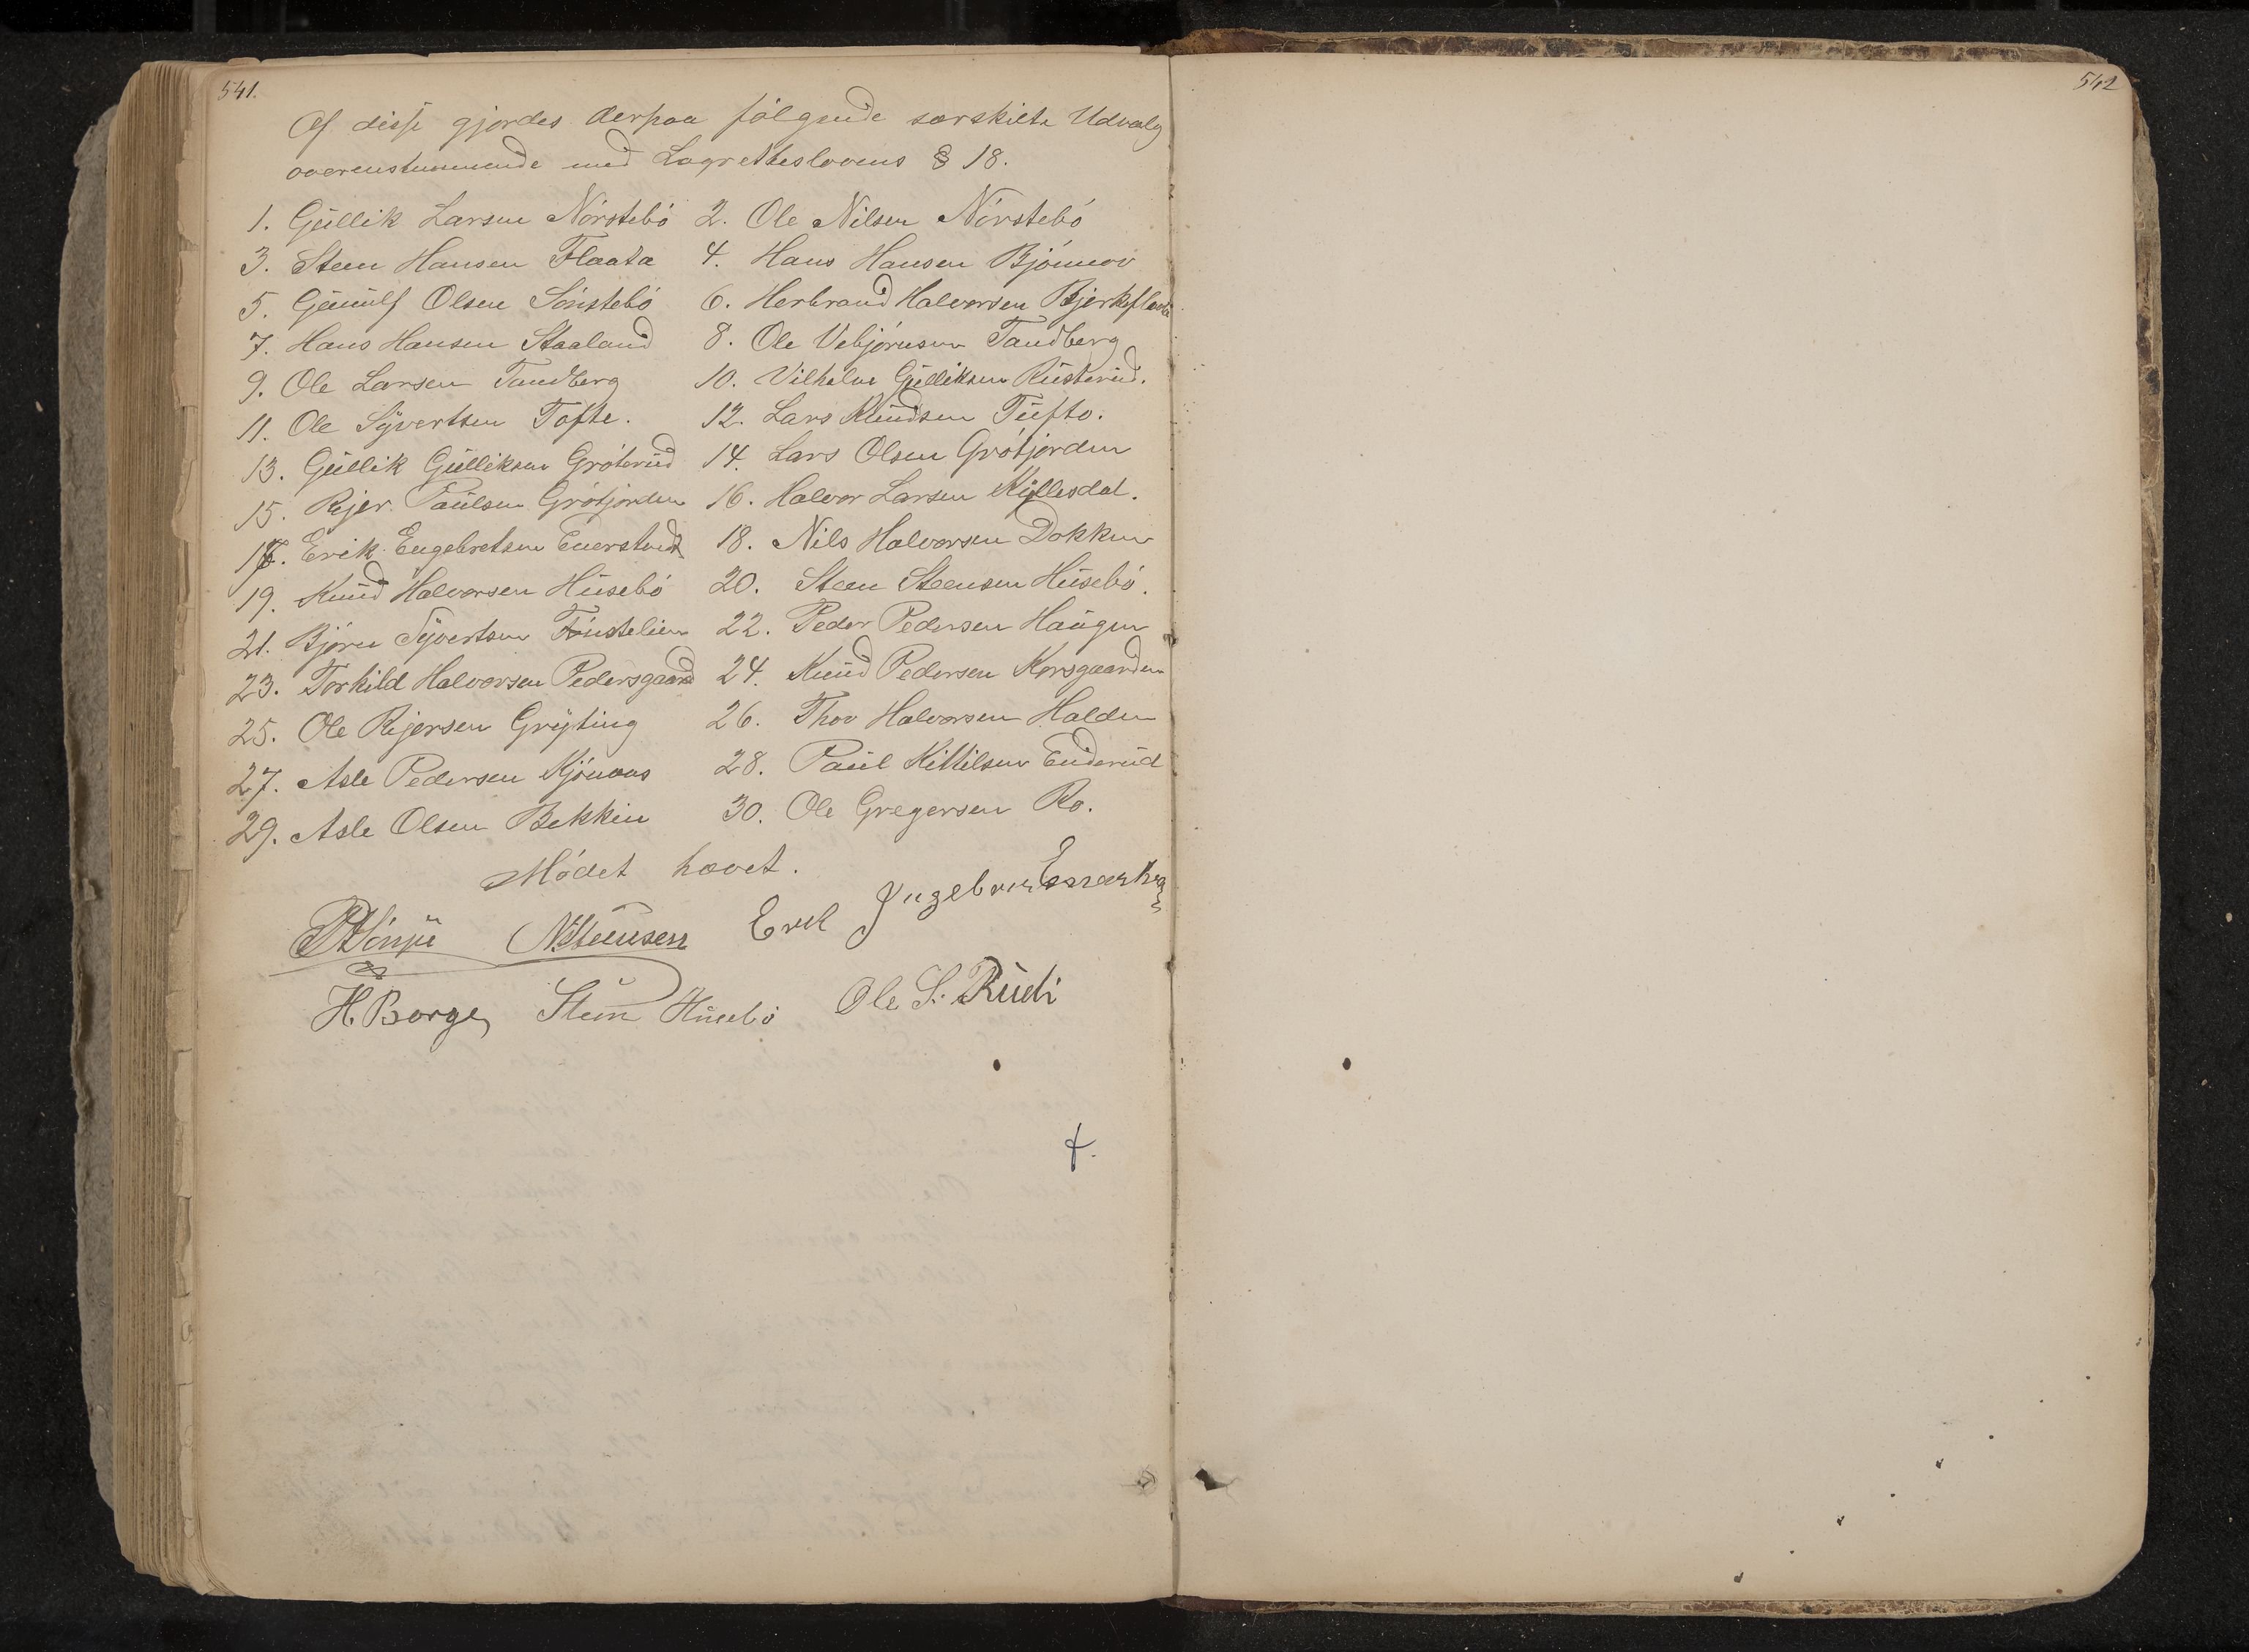 541.
542
Af disse gjordes derpaa følgende særskilte Udvalg
overenstemmende med Lagretteslovens § 18.
1. Gullik Larsen Nørstebø 2. Ole Nilsen Nørstebø
3. Steen Hansen Flaata 4. Hans Hansen
5. Gunulf Olsen Sønstebø 6. Herbrand Halvorsen Bjerkeflaata
7. Hans Hansen Staaland 8. Ole Vebjørnsen Tandberg
9. Ole Larsen Tandberg 10. Vilhelm Gulliksen Rusterud.
11. Ole Syvertsen Tofte. 12. Lars Knudsen Tufto.
13. Gullik Gulliksen Grøterud 14. Lars Olsen Grøtjorden
15. Rejer Paulsen Grøtjorden 16. Halvor Larsen Kyllesdal.
17. Erik Engebretsen Enerstvedt 18. Nils Halvorsen Dokken
19. Knud Halvorsen Husebø 20. Steen Steensen Husebø.
21. Bjørn Syvertsen Tønstelien 22. Peder Pedersen Haugen
23. Torkild Halvorsen Pedersgaard 24. Knud Pedersen Korsgaarden
25. Ole Rejersen Gryting 26. Thov Halvorsen Halden
27. Asle Pedersen Kjønaas 28. Paul Kittilsen Enderud
29. Asle Olsen Bekkin 30. Ole Gregersen Ro.
Mødet hævet.
NSteensen Erik
H. Borge, Steen Husebø Ole S. Rudi